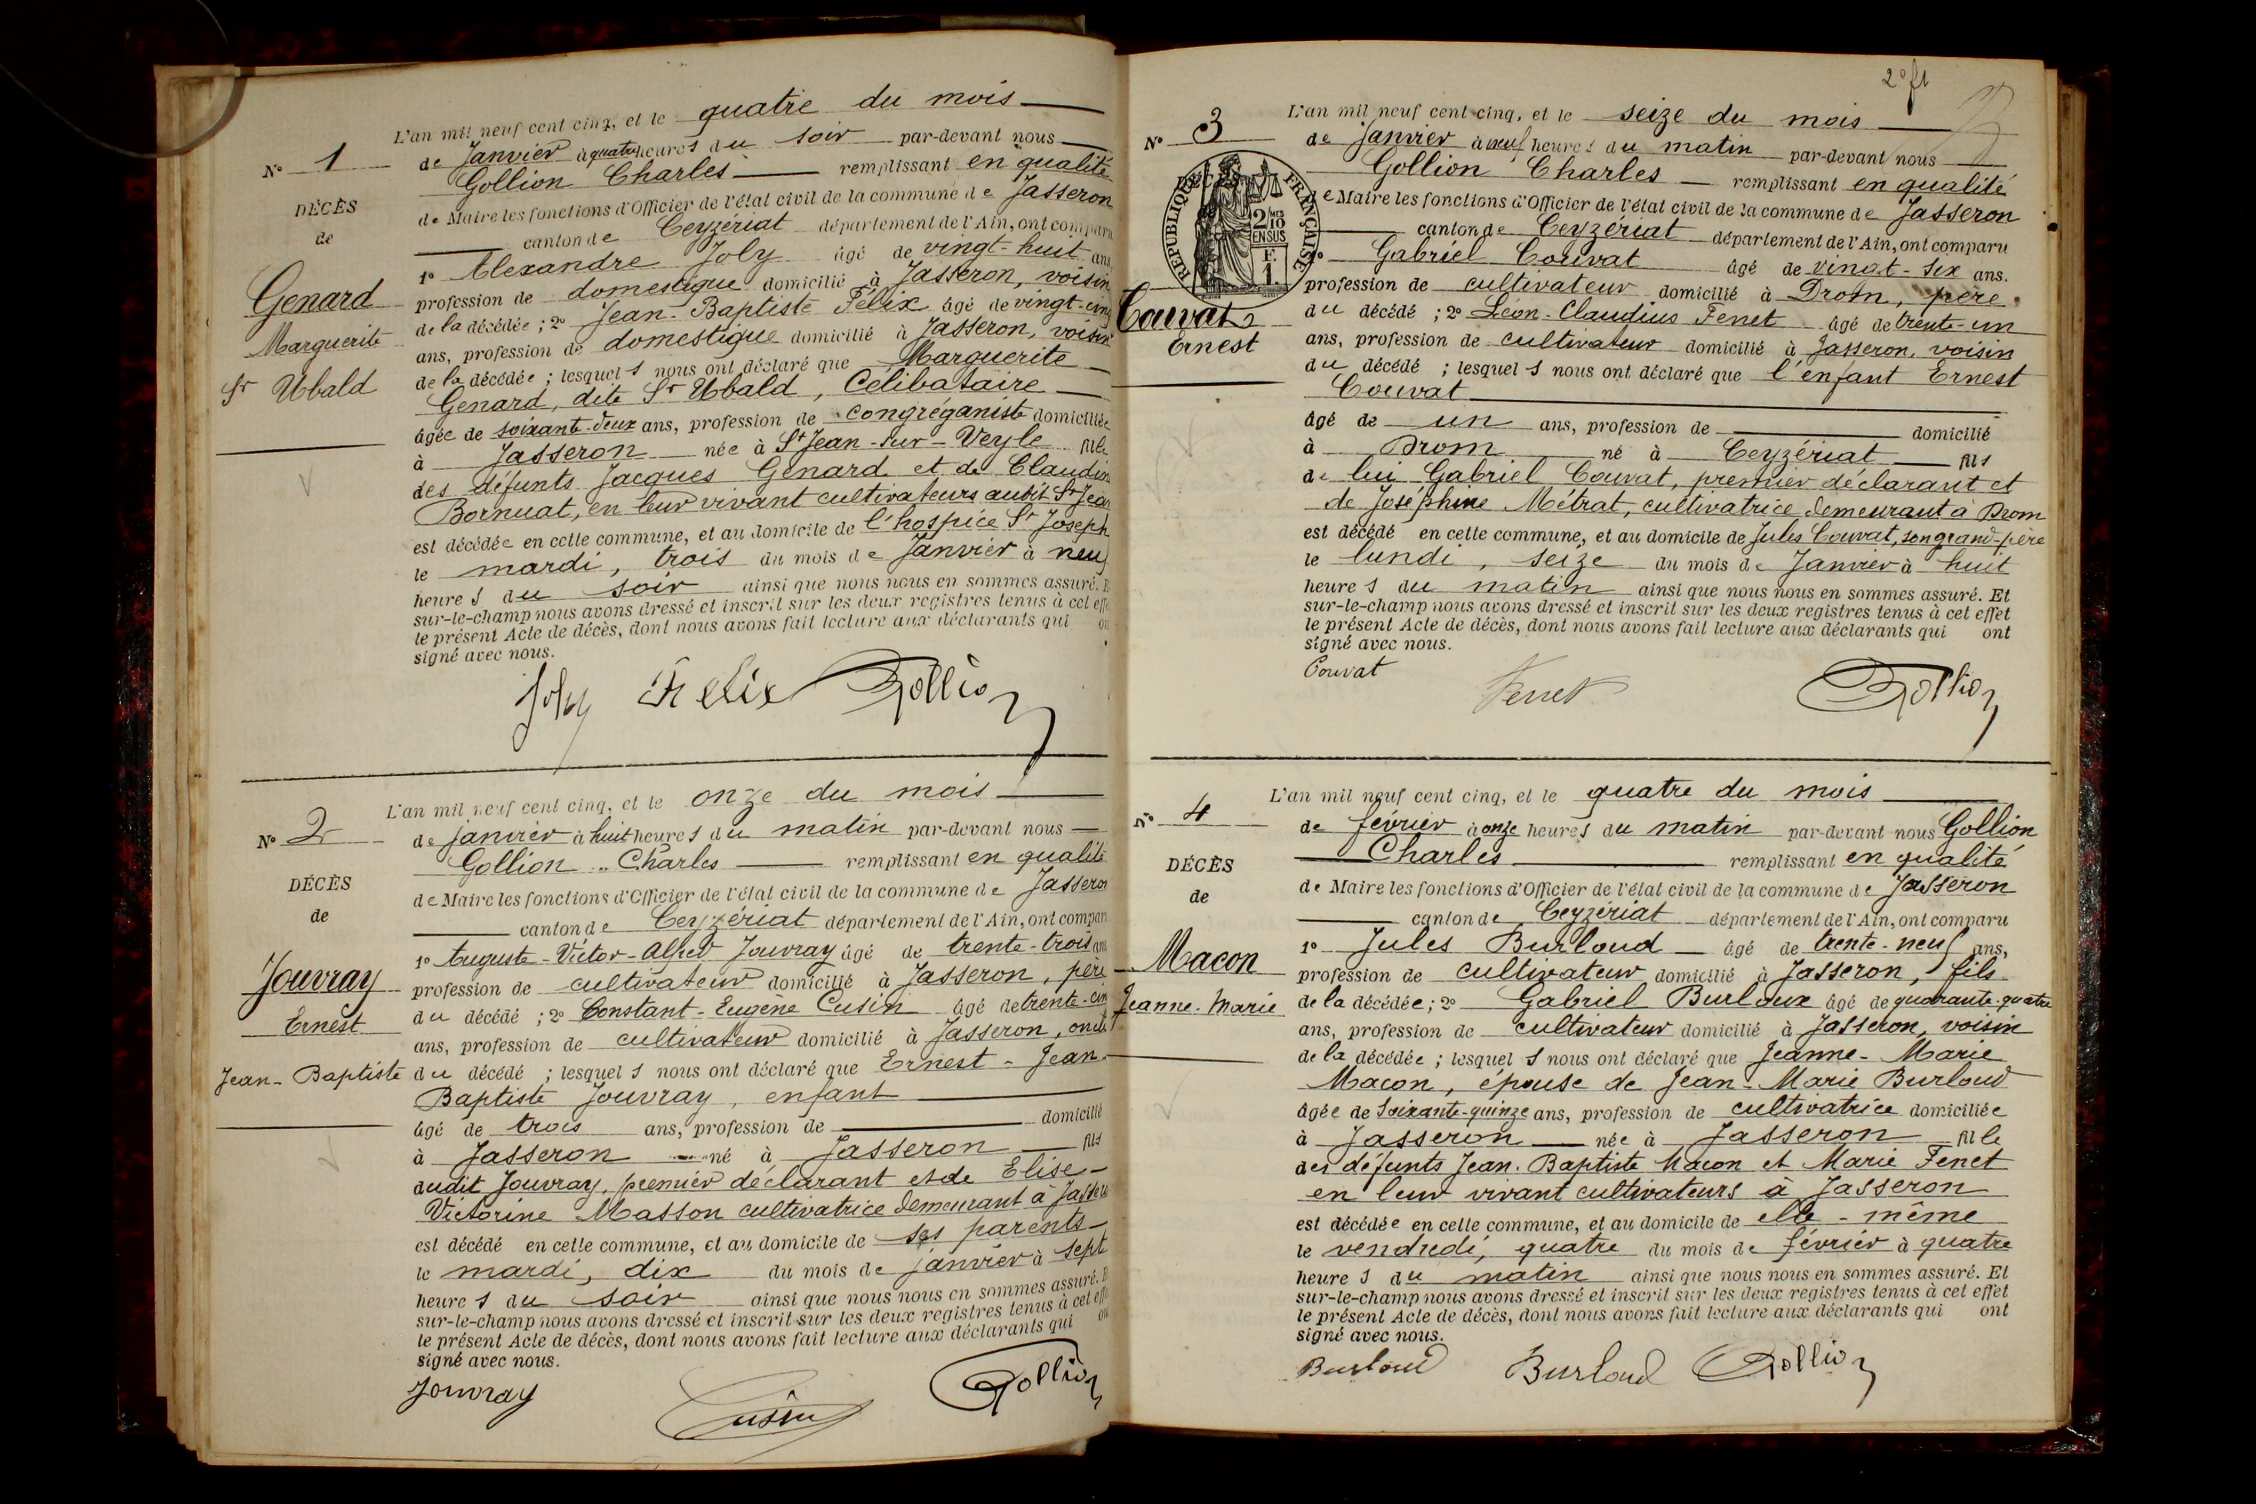 L'an mil neuf cent cinq, et le quatre du mois
N° 1
de Janvier à quatre heures du soir par-devant nous
Gollion Charles remplissant en qualité
DÉCÈS
de Maire les fonctions d'Officier de l'état civil de la commune de Jasseron
de
canton de Ceyzériat département de l'Ain, ont comparu
1° Alexandre Joly âgé de vingt-huit ans
Genard
profession de domestique domicilié à Jasseron, voisin
de la décédée ; 2° Jean-Baptiste Félix âgé de vingt-cinq
Marguerite
ans, profession de domestique domicilié à Jasseron, voisin
de la décédée ; lesquels nous ont déclaré que Marguerite
Sr Ubald
Genard, dite Sr Ubald, Célibataire
âgée de soixante-deux ans, profession de congréganiste domiciliée
à Jasseron née à St Jean-sur-Veyle fille
des défunts Jacques Genard et de Claudine
Bornuat, en leur vivant cultivateurs audit St Jean
est décédée en cette commune, et au domicile de l'hospice St Joseph
le mardi, trois du mois de Janvier à neuf
heures du soir ainsi que nous nous en sommes assuré. E
sur-le-champ nous avons dressé et inscrit sur les deux registres tenus à cet effe
le présent Acte de décès, dont nous avons fait lecture aux déclarants qui on
signé avec nous.
Joly Félix Gollion
L'an mil neuf cent cinq, et le onze du mois
N° 2
de janvier à huit heures du matin par-devant nous
Gollion Charles remplissant en qualité
DÉCÈS
de Maire les fonctions d'Officier de l'état civil de la commune de Jasseron
de
canton de Ceyzériat département de l'Ain, ont compar
1° Auguste-Victor-Alfred Jouvray âgé de trente-trois ans
Jouvray
profession de cultivateur domicilié à Jasseron, père
Ernest
du décédé ; 2° Constant-Eugène Cusin âgé de trente-cinq
ans, profession de cultivateur domicilié à Jasseron, oncle
Jean-Baptiste
du décédé ; lesquels nous ont déclaré que Ernest-Jean-
Baptiste Jouvray, enfant
âgé de trois ans, profession de domicilié
à Jasseron né à Jasseron fils
audit Jouvray, premier déclarant et de Elise-
Victorine Masson cultivatrice demeurant à Jasseron
est décédé en cette commune, et au domicile de ses parents
le mardi, dix du mois de janvier à sept
heures du soir ainsi que nous nous en sommes assuré. E
sur-le-champ nous avons dressé et inscrit sur les deux registres tenus à cet effe
le présent Acte de décès, dont nous avons fait lecture aux déclarants qui on
signé avec nous.
Jouvray Cusin Gollion
2e ft
L'an mil neuf cent cinq, et le seize du mois
N° 3
de janvier à neuf heures du matin par-devant nous
Gollion Charles remplissant en qualité
de Maire les fonctions d'Officier de l'état civil de la commune de Jasseron
RÉPUBLIQUE FRANÇAISE
2/10 EN SUS
F. 1.
canton de Ceyzériat département de l'Ain, ont comparu
1° Gabriel Couvat âgé de vingt-six ans.
profession de cultivateur domicilié à Drom, père
Couvat
du décédé ; 2° Léon-Claudius Fenet âgé de trente-un
Ernest
ans, profession de cultivateur domicilié à Jasseron, voisin
du décédé ; lesquels nous ont déclaré que l'enfant Ernest
Couvat
âgé de un ans, profession de domicilié
à Drom né à Ceyzériat fils
de lui Gabriel Couvat, premier déclarant et
de Joséphine Métrat, cultivatrice demeurant à Drom
est décédé en cette commune, et au domicile de Jules Couvat, son grand-père
le lundi, seize du mois de Janvier à huit
heures du matin ainsi que nous nous en sommes assuré. Et
sur-le-champ nous avons dressé et inscrit sur les deux registres tenus à cet effet
le présent Acte de décès, dont nous avons fait lecture aux déclarants qui ont
signé avec nous.
Couvat Fenet Gollion
L'an mil neuf cent cinq, et le quatre du mois
N° 4
de février à onze heures du matin par-devant nous Gollion
Charles remplissant en qualité
DÉCÈS
de Maire les fonctions d'Officier de l'état civil de la commune de Jasseron
de
canton de Ceyzériat département de l'Ain, ont comparu
1° Jules Burloud âgé de trente-neuf ans,
Macon
profession de cultivateur domicilié à Jasseron, fils
Jeanne-Marie
de la décédée ; 2° Gabriel Burloux âgé de quarante-quatre
ans, profession de cultivateur domicilié à Jasseron, voisin
de la décédée ; lesquels nous ont déclaré que Jeanne-Marie
Macon, épouse de Jean-Marie Burloud
âgée de soixante-quinze ans, profession de cultivatrice domiciliée
à Jasseron née à Jasseron fille
des défunts Jean-Baptiste Macon et Marie Fenet
en leur vivant cultivateurs à Jasseron
est décédée en cette commune, et au domicile de elle-même
le vendredi, quatre du mois de février à quatre
heures du matin ainsi que nous nous en sommes assuré. Et
sur-le-champ nous avons dressé et inscrit sur les deux registres tenus à cet effet
le présent Acte de décès, dont nous avons fait lecture aux déclarants qui ont
signé avec nous.
Burloud Burloud Gollion